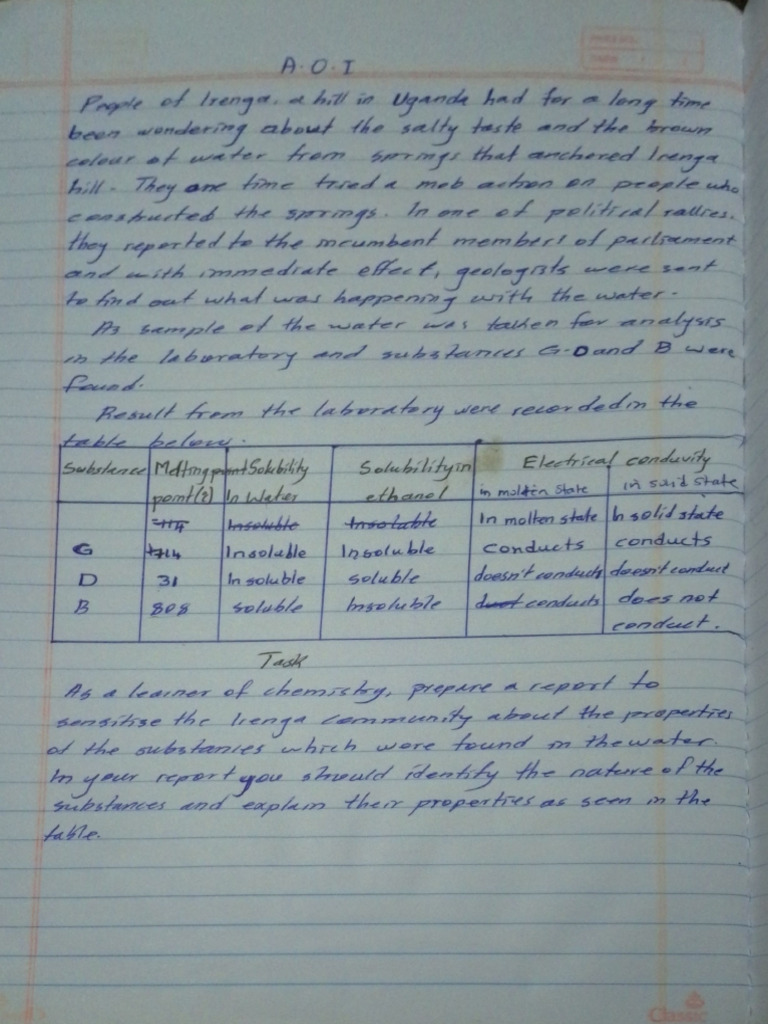 A.O.I
People of Irenga, a hill in Uganda had for a long time
been wondering about the salty taste and the brown
colour of water from springs that anchored Irenga
hill. They one time tried a mob action on people who
constructed the springs. In one of political rallies,
they reported to the incumbent members of parliament
and with immediate effect, geologists were sent
to find out what was happening with the water.
As sample of the water was taken for analysis
in the laboratory and substances G.D and B were
found.
Result from the laboratory were recorded in the
table below.
Substance Melting point Solubility Solubility in Electrical conduvity
point() In Water ethanol in molten state in solid state
114 Insoluble Insoluble In molten state In solid state
G 714 Insoluble Insoluble conducts conducts
D 31 Insoluble soluble doesn't conducts doesn't conduct
B 808 soluble Insoluble conducts does not
conduct.
Task
As a learner of chemistry, prepare a report to
sensitise the Irenga community about the properties
of the substances which were found in the water.
In your report you should identify the nature of the
substances and explain their properties as seen in the
table.
Classic